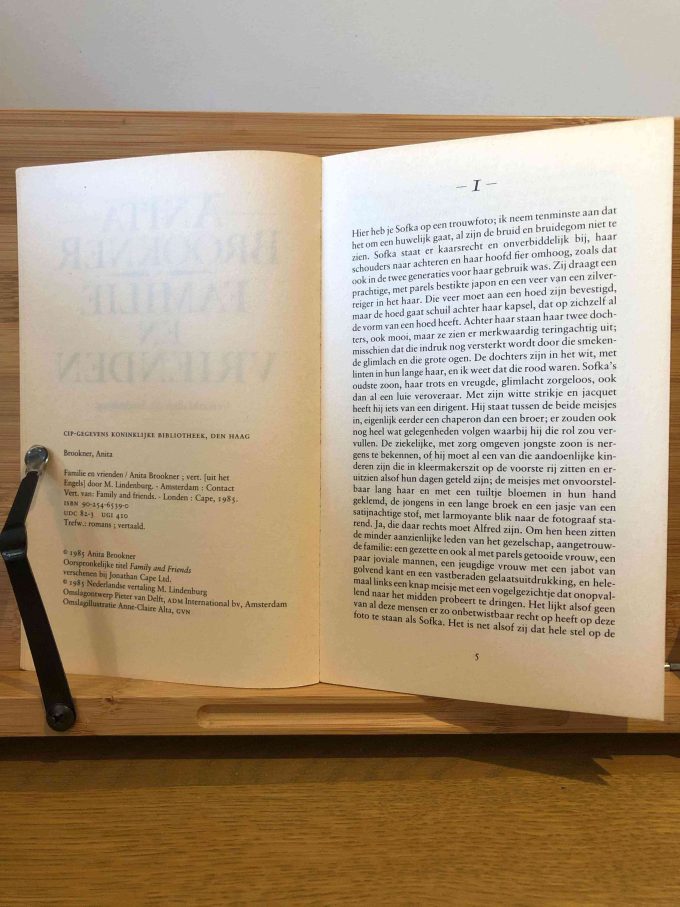 CIP-GEGEVENS KONINKLIJKE BIBLIOTHEEK, DEN HAAG
Brookner, Anita
Familie en vrienden / Anita Brookner ; vert. [uit het
Engels] door M. Lindenburg. - Amsterdam : Contact
Vert. van: Family and friends. - London : Cape, 1985.
ISBN 90-254-6539-0
UDC 82-3 UGI 410
Trefw.: romans ; vertaald.
© 1985 Anita Brookner
Oorspronkelijke titel Family and Friends
verschenen bij Jonathan Cape Ltd.
© 1985 Nederlandse vertaling M. Lindenburg
Omslagontwerp Pieter van Delft, ADM International bv, Amsterdam
Omslagillustratie Anne-Claire Alta, GVN
– I –
Hier heb je Sofka op een trouwfoto; ik neem tenminste aan dat
het om een huwelijk gaat, al zijn de bruid en bruidegom niet te
zien. Sofka staat er kaarsrecht en onverbiddelijk bij, haar
schouders naar achteren en haar hoofd fier omhoog, zoals dat
ook in de twee generaties voor haar gebruik was. Zij draagt een
prachtige, met parels bestikte japon en een veer van een zilver-
reiger in het haar. Die veer moet aan een hoed zijn bevestigd,
maar de hoed gaat schuil achter haar kapsel, dat op zichzelf al
de vorm van een hoed heeft. Achter haar staan haar twee doch-
ters, ook mooi, maar ze zien er merkwaardig teringachtig uit;
misschien dat die indruk nog versterkt wordt door die smeken-
de glimlach en die grote ogen. De dochters zijn in het wit, met
linten in hun lange haar, en ik weet dat die rood waren. Sofka's
oudste zoon, haar trots en vreugde, glimlacht zorgeloos, ook
dan al een luie veroveraar. Met zijn witte strikje en jacquet
heeft hij iets van een dirigent. Hij staat tussen de beide meisjes
in, eigenlijk eerder een chaperon dan een broer; er zouden ook
nog heel wat gelegenheden volgen waarbij hij die rol zou ver-
vullen. De ziekelijke, met zorg omgeven jongste zoon is ner-
gens te bekennen, of hij moet al een van die aandoenlijke kin-
deren zijn die in kleermakerszit op de voorste rij zitten en er-
uitzien alsof hun dagen geteld zijn; de meisjes met onvoorstel-
baar lang haar en met een tuiltje bloemen in hun hand
geklemd, de jongens in een lange broek en een jasje van een
satijnachtige stof, met larmoyante blik naar de fotograaf sta-
rend. Ja, die daar rechts moet Alfred zijn. Om hen heen zitten
de minder aanzienlijke leden van het gezelschap, aangetrouw-
de familie: een gezette en ook al met parels getooide vrouw, een
paar joviale mannen, een jeugdige vrouw met een jabot van
golvend kant en een vastberaden gelaatsuitdrukking, en hele-
maal links een knap meisje met een vogelgezichtje dat onopval-
lend naar het midden probeert te dringen. Het lijkt alsof geen
van al deze mensen er zo onbetwistbaar recht op heeft op deze
foto te staan als Sofka. Het is net alsof zij dat hele stel op de
5